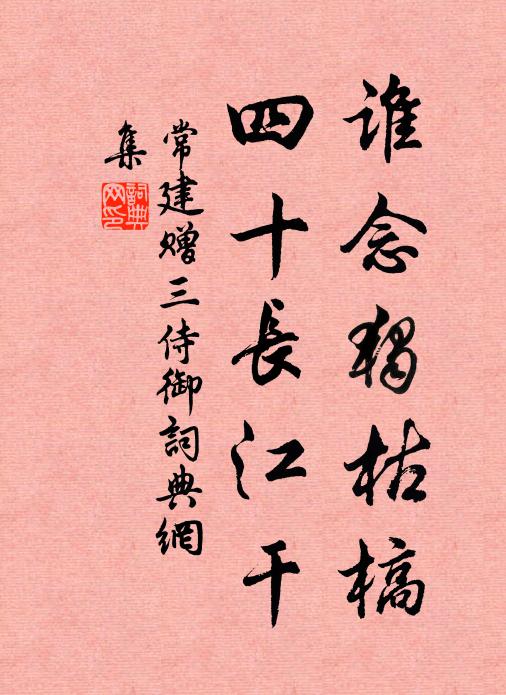 誰念獨枯槁
四十長江干
常建贈三侍御詞典網
集
詞典
网印